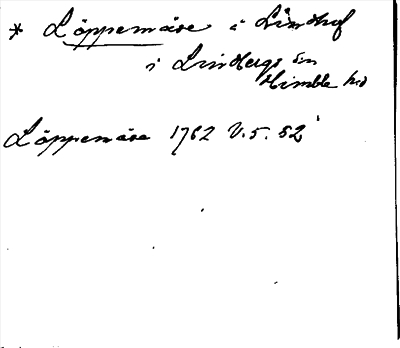 * Löppemåse å Lindhof
i Lindbergs sn
Himble hd
Löppemåse 1762 V. 5. 52